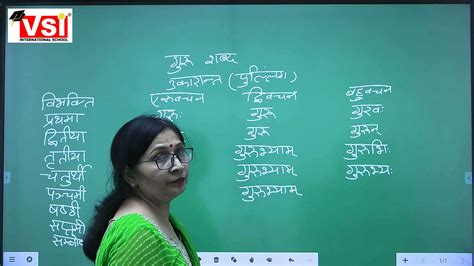 VSI
INTERNATIONAL SCHOOL
गुरू शब्द
उकारान्त (पुल्लिंग)
विभक्ति एकवचन द्विवचन बहुवचन
प्रथमा गुरूः गुरू गुरवः
द्वितीया गुरू गुरून्
तृतीया गुरूभ्याम् गुरूभिः
चतुर्थी गुरूभ्याम् गुरूभ्यः
पञ्चमी गुरूभ्याम्
षष्ठी
सप्तमी
1/1